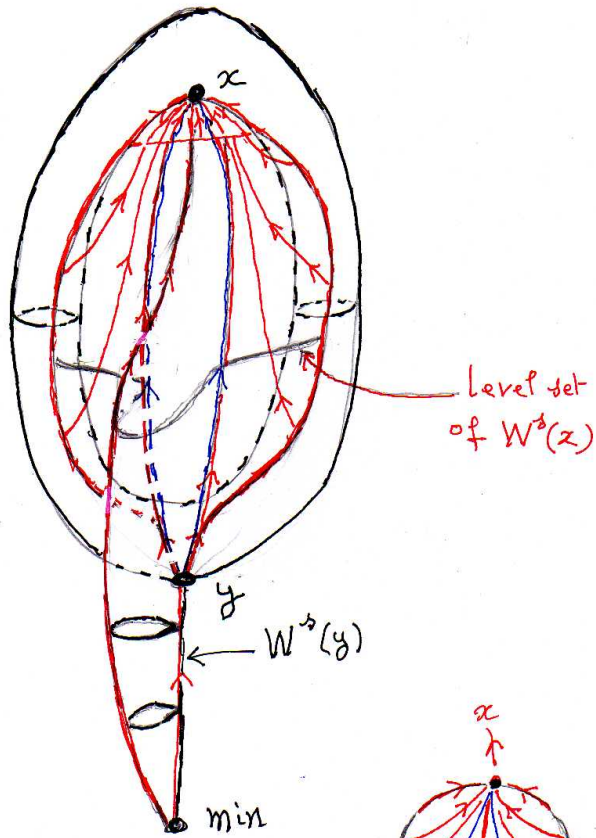 x
Level set
of Wˢ(x)
y
Wˢ(y)
min
x